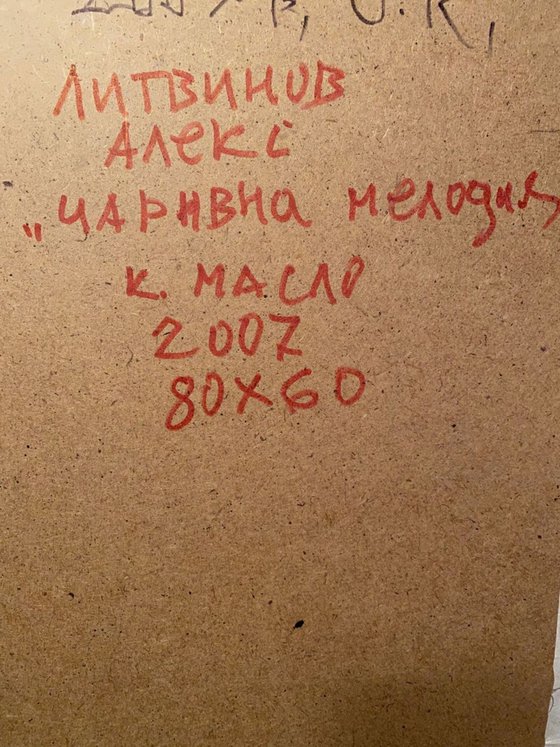 ЛИТВИНОВ
АЛЕКС
„ЧАРИВНА мелодия„
К. МАСЛО
2007
80Х60